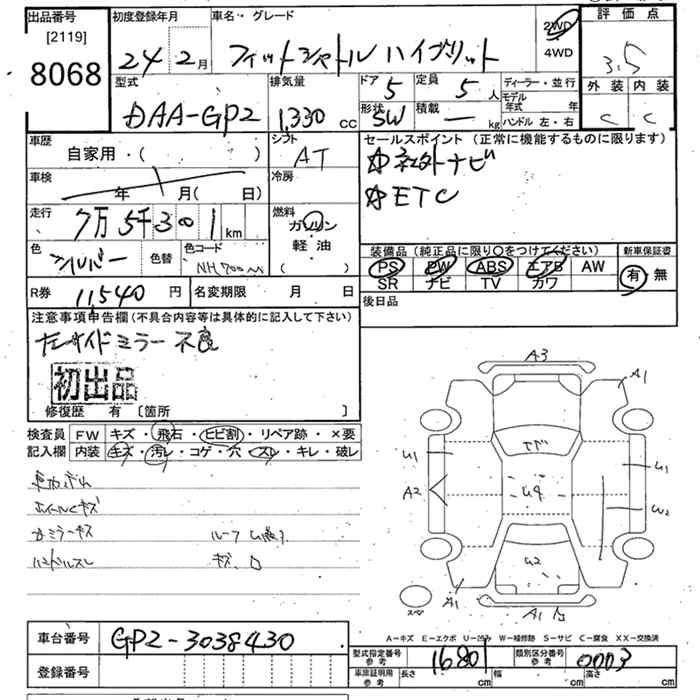 出品番号
[2119]
8068
初度登録年月
24年 2月
車名・グレード
フィットシャトル ハイブリット
2WD
4WD
評価点
3.5
外装 内装
C C
型式
DAA-GP2
排気量
1,330 CC
ドア 5
定員 5 人
形状 SW
積載 ー kg
ディーラー・並行
モデル年式 年
ハンドル 左・右
車歴
自家用・( )
シフト
AT
車検
年 月( 日)
冷房
走行
7万5千301 km
燃料
ガソリン
軽油
( )
色
シルバー
色替
色コード
NH700M
セールスポイント (正常に機能するものに限ります)
☆社外ナビ
☆ETC
装備品(純正品に限り○をつけてください)
PS PW ABS エアB AW
SR ナビ TV カワ
新車保証書
有 無
R券 11,540 円
名変期限 月 日
後日品
注意事項申告欄(不具合内容等は具体的に記入して下さい)
左サイドミラー不良
初出品
修復歴 有 [箇所 ]
検査員 FW キズ・飛石・ヒビ割・リペア跡・×要
記入欄 内装 キズ・汚レ・コゲ・穴・スレ・キレ・破レ
ホイールキズ
ミラーキズ
ハンドルスレ
ルーフ
キズ、
A3
A1
U1
U1
A2
U9
W2
U2
A1
A1
スペア
A-キズ E-エクボ U-凹み W-補修跡 S-サビ C-腐食 XX-交換済
車台番号
GP2-3038430
登録番号
型式指定番号 参考
16801
類別区分番号 参考
0003
車庫証明用 参考
長さ cm 幅 cm 高さ cm